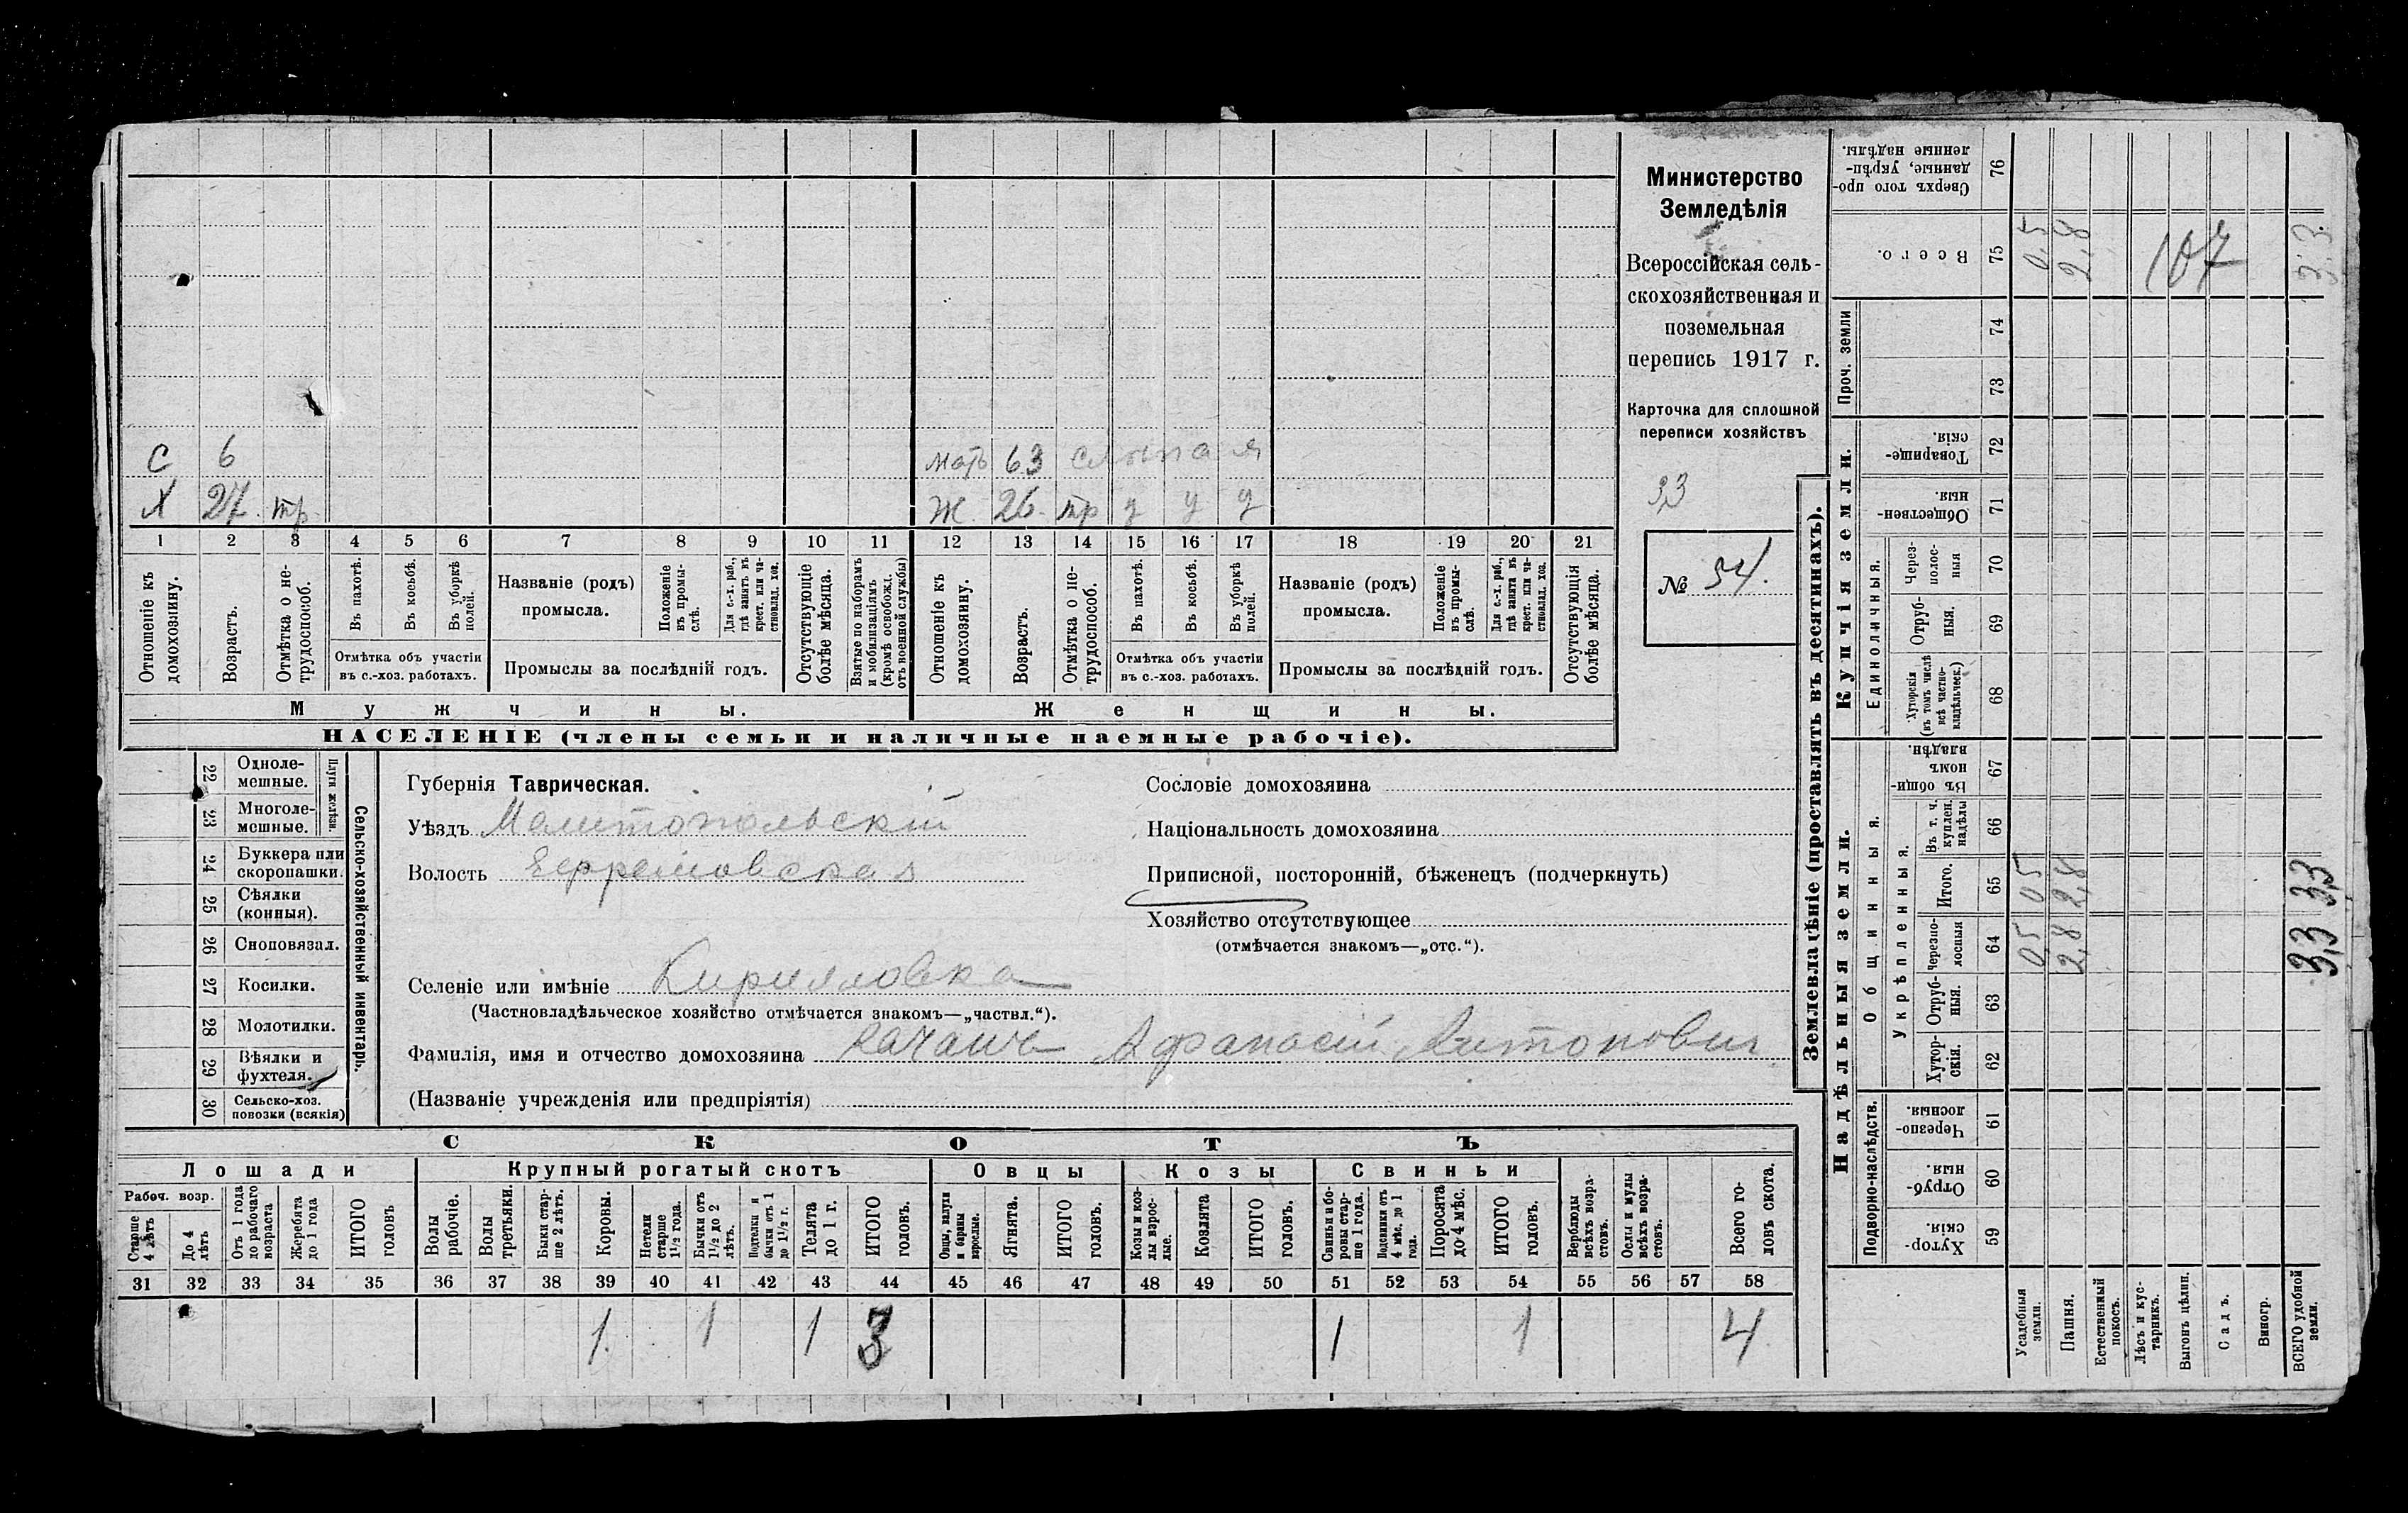 С 6 мать 63 слепая
Х 27. тр. Ж. 26. тр у у у
1 2 3 4 5 6 7 8 9 10 11 12 13 14 15 16 17 18 19 20 21
Отношеніе къ домохозяину.
Возрастъ.
Отмѣтка о не-трудоспособ.
Въ пахотѣ.
Въ косьбѣ.
Въ уборкѣ полей.
Отмѣтка объ участіи
въ с.-хоз. работахъ.
Названіе (родъ)
промысла.
Положеніе въ промы-слѣ.
Для с.-х. раб., гдѣ занятъ въ крест. или ча-стновлад. хоз.
Промыслы за послѣдній годъ.
Отсутствующіе болѣе мѣсяца.
Взятые по наборамъ и мобилизаціямъ (кромѣ освобожд. отъ военной службы)
Отношеніе къ домохозяину.
Возрастъ.
Отмѣтка о не-трудоспособ.
Въ пахотѣ.
Въ косьбѣ.
Въ уборкѣ полей.
Отмѣтка объ участіи
въ с.-хоз. работахъ.
Названіе (родъ)
промысла.
Положеніе въ промы-слѣ.
Для с.-х. раб., гдѣ занята въ крест. или ча-стновлад. хоз.
Промыслы за послѣдній годъ.
Отсутствующія болѣе мѣсяца.
Мужчины. Женщины.
НАСЕЛЕНІЕ (члены семьи и наличные наемные рабочіе).
Министерство
Земледѣлія
Всероссійская сель-
скохозяйственная и
поземельная
перепись 1917 г.
Карточка для сплошной
переписи хозяйствъ
33
№ 54.
22 Одноле-мешные.
23 Многоле-мешные.
Плуги желѣзн.
24 Буккера или скоропашки.
25 Сѣялки (конныя).
26 Сноповязал.
27 Косилки.
28 Молотилки.
29 Вѣялки и фухтеля.
30 Сельско-хоз. повозки (всякія)
Сельско-хозяйственный инвентарь.
Губернія Таврическая.
Уѣздъ Мелитопольскій
Волость Ефремовская
Селеніе или имѣніе Кирилловка
(Частновладѣльческое хозяйство отмѣчается знакомъ—„частвл.“).
Фамилія, имя и отчество домохозяина Качанъ Афанасій Антонович
(Названіе учрежденія или предпріятія)
Сословіе домохозяина
Національность домохозяина
Приписной, посторонній, бѣженецъ (подчеркнуть)
Хозяйство отсутствующее
(отмѣчается знакомъ—„отс.“).
СКОТЪ
Лошади Крупный рогатый скотъ Овцы Козы Свиньи
Рабоч. возр.
Старше 4 лѣтъ
До 4 лѣтъ
Отъ 1 года до рабочаго возраста
Жеребята до 1 года
ИТОГО головъ
Волы рабочіе.
Волы третьяки.
Быки стар-ше 2 лѣтъ.
Коровы.
Нетели старше 1½ года.
Бычки отъ 1½ до 2 лѣтъ.
Подтелки и бычки отъ 1 до 1½ г.
Телята до 1 г.
ИТОГО головъ.
Овцы, валухи и бараны взрослые.
Ягнята.
ИТОГО головъ.
Козы и коз-лы взрос-лые.
Козлята
ИТОГО головъ.
Свиньи и бо-ровы стар-ше 1 года.
Подсвинки отъ 4 мѣс. до 1 года.
Поросята до 4 мѣс.
ИТОГО головъ.
Верблюды всѣхъ возра-стовъ.
Ослы и мулы всѣхъ возра-стовъ.
Всего го-ловъ скота.
31 32 33 34 35 36 37 38 39 40 41 42 43 44 45 46 47 48 49 50 51 52 53 54 55 56 57 58
1. 1 1 3 1 1 4
Землевладѣніе (проставлять въ десятинахъ).
Надѣльныя земли. Купчія земли. Проч. земли
Подворно-наслѣдств. Общинныя. Единоличныя.
Укрѣпленныя.
Хутор-скія. 59
Отруб-ныя. 60
Черезпо-лосныя 61
Хутор-скія. 62
Отруб-ныя. 63
Черезпо-лосныя 64
Итого. 65
Въ т. ч. куплен. надѣлы 66
Въ общин-номъ владѣн. 67
Хуторскія (въ томъ числѣ всѣ частно-владѣльческ.) 68
Отруб-ныя. 69
Через-полос-ныя 70
Обществен-ныя. 71
Товарище-скія. 72
73
74
Всего. 75
Сверхъ того про-данные, укрѣп-ленные надѣлы. 76
Усадебныя земли. 0,5 0,5 0,5
Пашня. 2,8 2,8 2,8
Естественный покосъ.
Лѣсъ и кус-тарникъ.
Выгонъ цѣлин.
Садъ.
Виногр.
ВСЕГО удобной земли. 3,3 3,3 3,3.
107